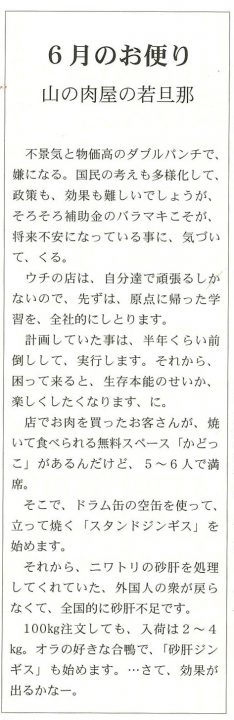 6月のお便り
山の肉屋の若旦那
不景気と物価高のダブルパンチで、
嫌になる。国民の考えも多様化して、
政策も、効果も難しいでしょうが、
そろそろ補助金のバラマキこそが、
将来不安になっている事に、気づい
て、くる。
ウチの店は、自分達で頑張るしか
ないので、先ずは、原点に帰った学
習を、全社的にしとります。
計画していた事は、半年くらい前
倒しして、実行します。それから、
困って来ると、生存本能のせいか、
楽しくしたくなります、に。
店でお肉を買ったお客さんが、焼
いて食べられる無料スペース「かどっ
こ」があるんだけど、5～6人で満
席。
そこで、ドラム缶の空缶を使って、
立って焼く「スタンドジンギス」を
始めます。
それから、ニワトリの砂肝を処理
してくれていた、外国人の衆が戻ら
なくて、全国的に砂肝不足です。
100kg注文しても、入荷は2～4
kg。オラの好きな合鴨で、「砂肝ジン
ギス」も始めます。…さて、効果が
出るかなー。